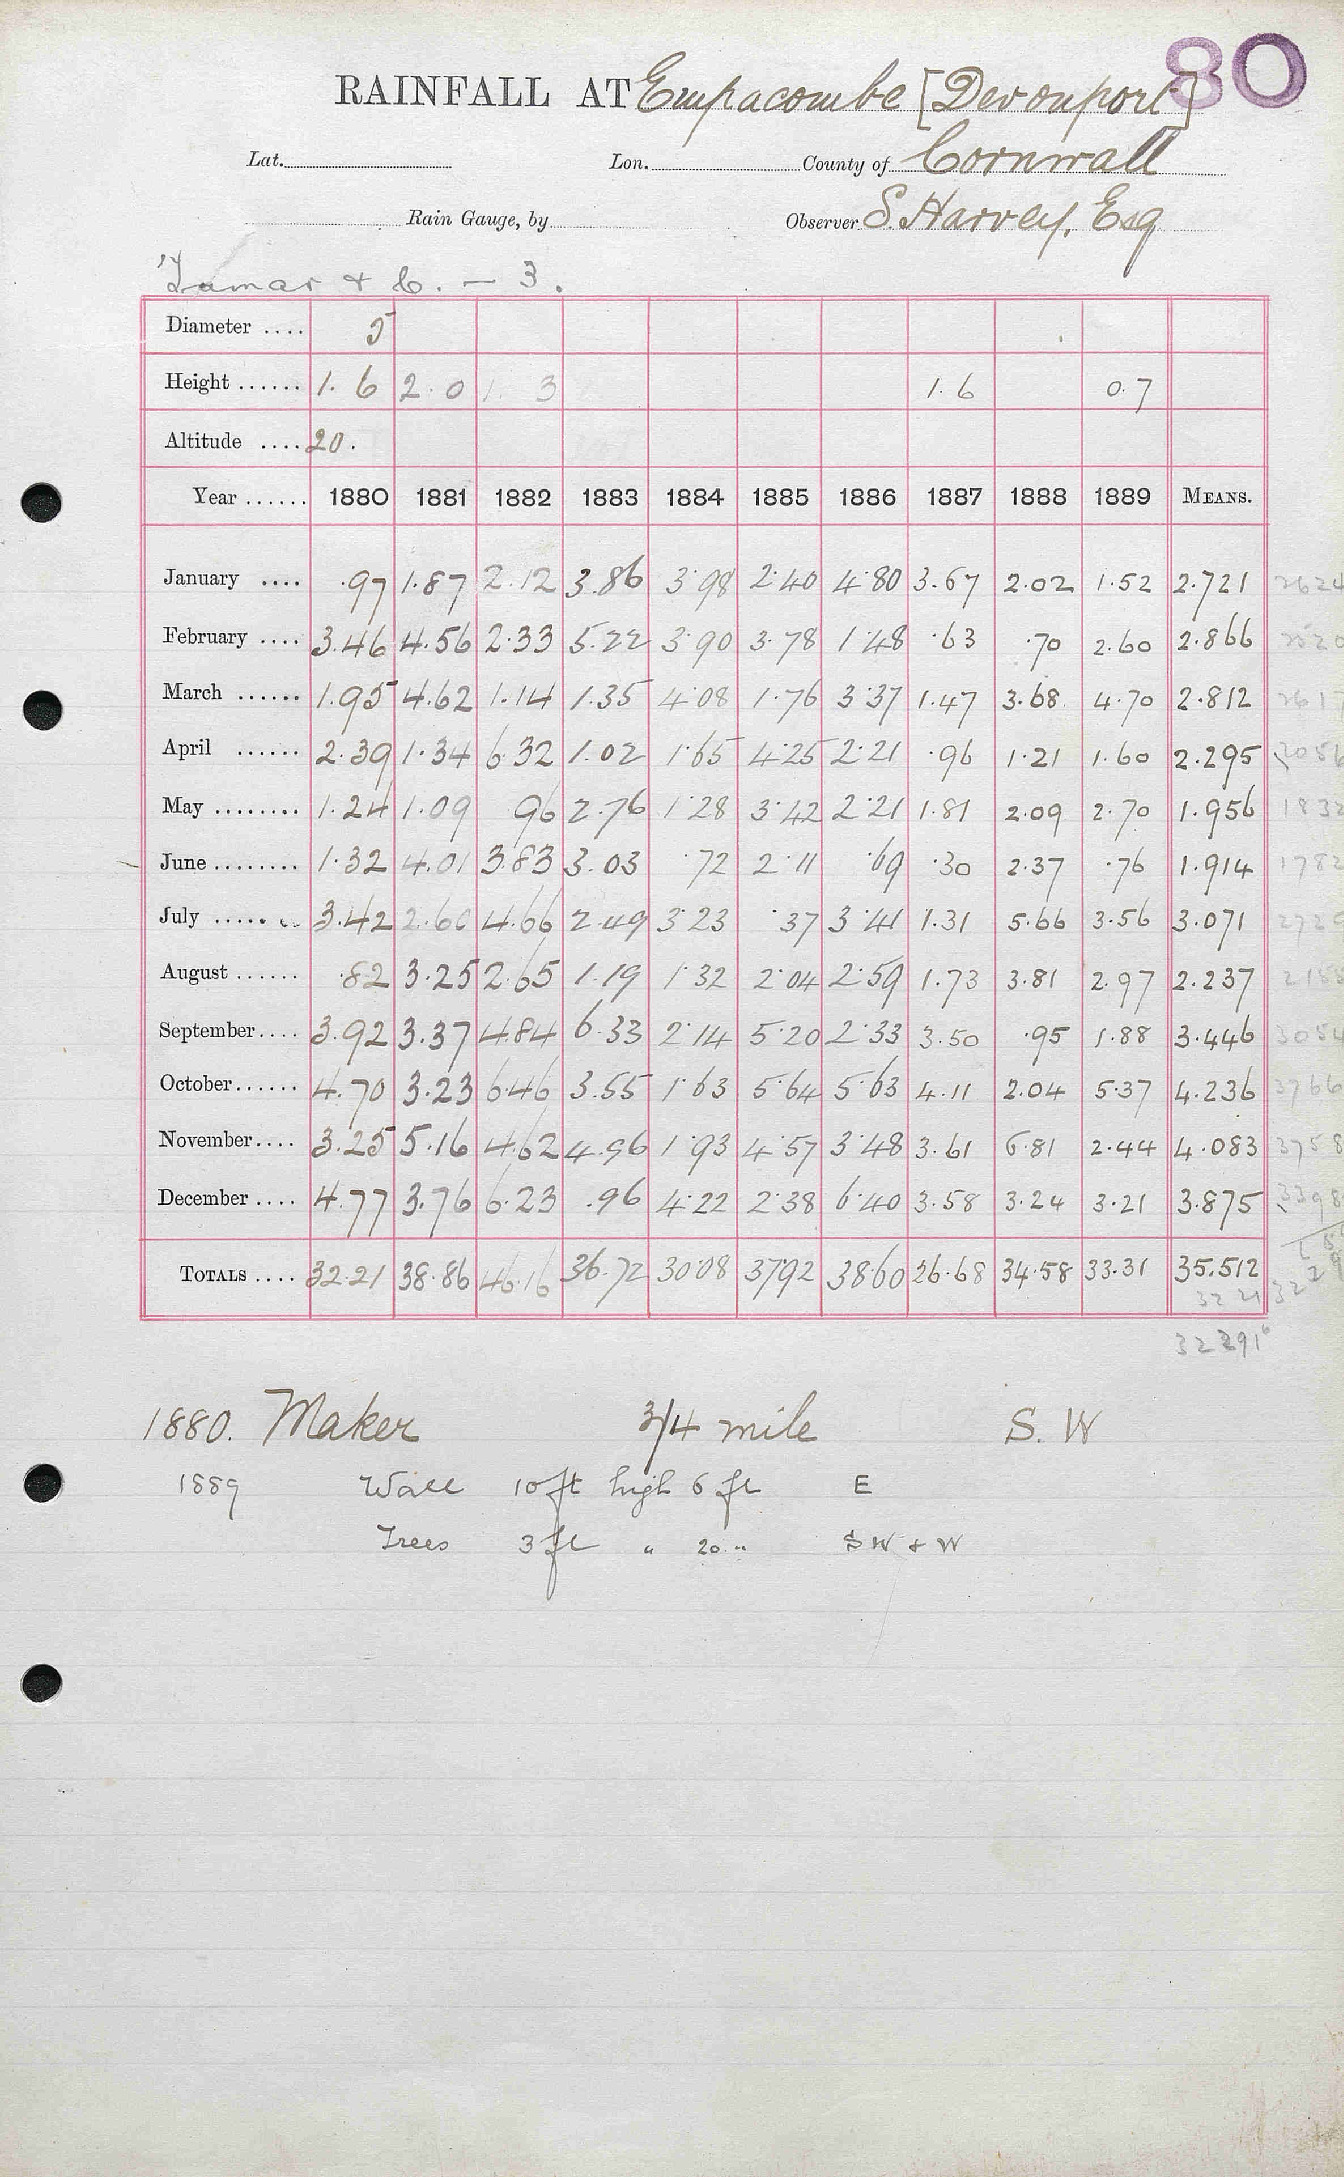 80
RAINFALL AT Empacombe [Devonport]
Lat. Lon. County of Cornwall
Rain Gauge, by Observer S. Harvey, Esq
Tamar & C. — 3.
Diameter .... 5
Height ...... 1.6 2.0 1.3 1.6 0.7
Altitude .... 20.
Year ...... 1880 1881 1882 1883 1884 1885 1886 1887 1888 1889 MEANS.
January .... .97 1.87 2.12 3.86 3.98 2.40 4.80 3.67 2.02 1.52 2.721 2624
February .... 3.46 4.56 2.33 5.22 3.90 3.78 1.48 .63 .70 2.60 2.866 2520
March ...... 1.95 4.62 1.14 1.35 4.08 1.76 3.37 1.47 3.68 4.70 2.812 2617
April ...... 2.39 1.34 6.32 1.02 1.65 4.25 2.21 .96 1.21 1.60 2.295 2056
May ........ 1.24 1.09 96 2.76 1.28 3.42 2.21 1.81 2.09 2.70 1.956 1832
June ........ 1.32 4.01 3.83 3.03 .72 2.11 .69 .30 2.37 .76 1.914 1782
July ...... 3.42 2.60 4.66 2.49 3.23 .37 3.41 1.31 5.66 3.56 3.071
August ...... .82 3.25 2.65 1.19 1.32 2.04 2.59 1.73 3.81 2.97 2.237
September .... 3.92 3.37 4.84 6.33 2.14 5.20 2.33 3.50 .95 1.88 3.446 3054
October ...... 4.70 3.23 6.46 3.55 1.63 5.64 5.63 4.11 2.04 5.37 4.236 3766
November .... 3.25 5.16 4.62 4.96 1.93 4.57 3.48 3.61 6.81 2.44 4.083 3758
December .... 4.77 3.76 6.23 .96 4.22 2.38 6.40 3.58 3.24 3.21 3.875 3398
TOTALS .... 32.21 38.86 46.16 36.72 30.08 37.92 38.60 26.68 34.58 33.31 35.512
32 21
32 291
1880. Maker 3/4 mile S. W
1889 Wall 10 ft high 6 ft E
Trees 3 ft " 20 " SW & W